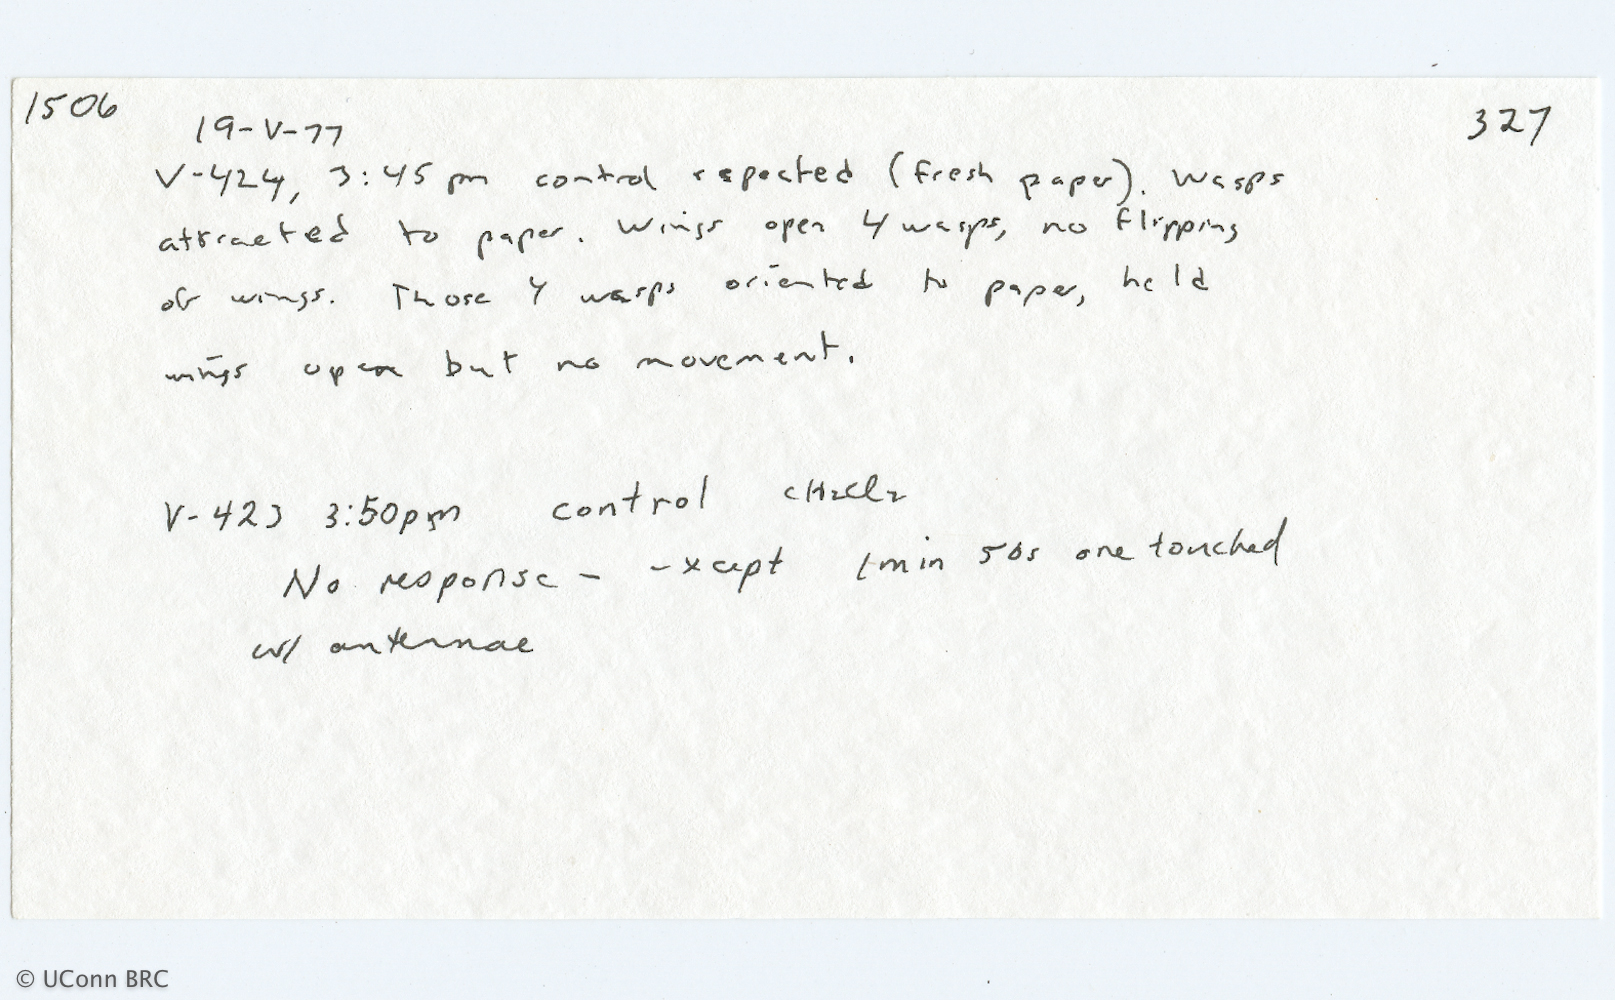 1506
327
19-V-77
V-424, 3:45 pm control repeated (fresh paper). Wasps
attracted to paper. Wings open 4 wasps, no flipping
of wings. Those 4 wasps oriented to paper, held
wings open but no movement.
V-423 3:50pm control CH2Cl2
No response - except 1min 50s one touched
w/ antennae
© UConn BRC